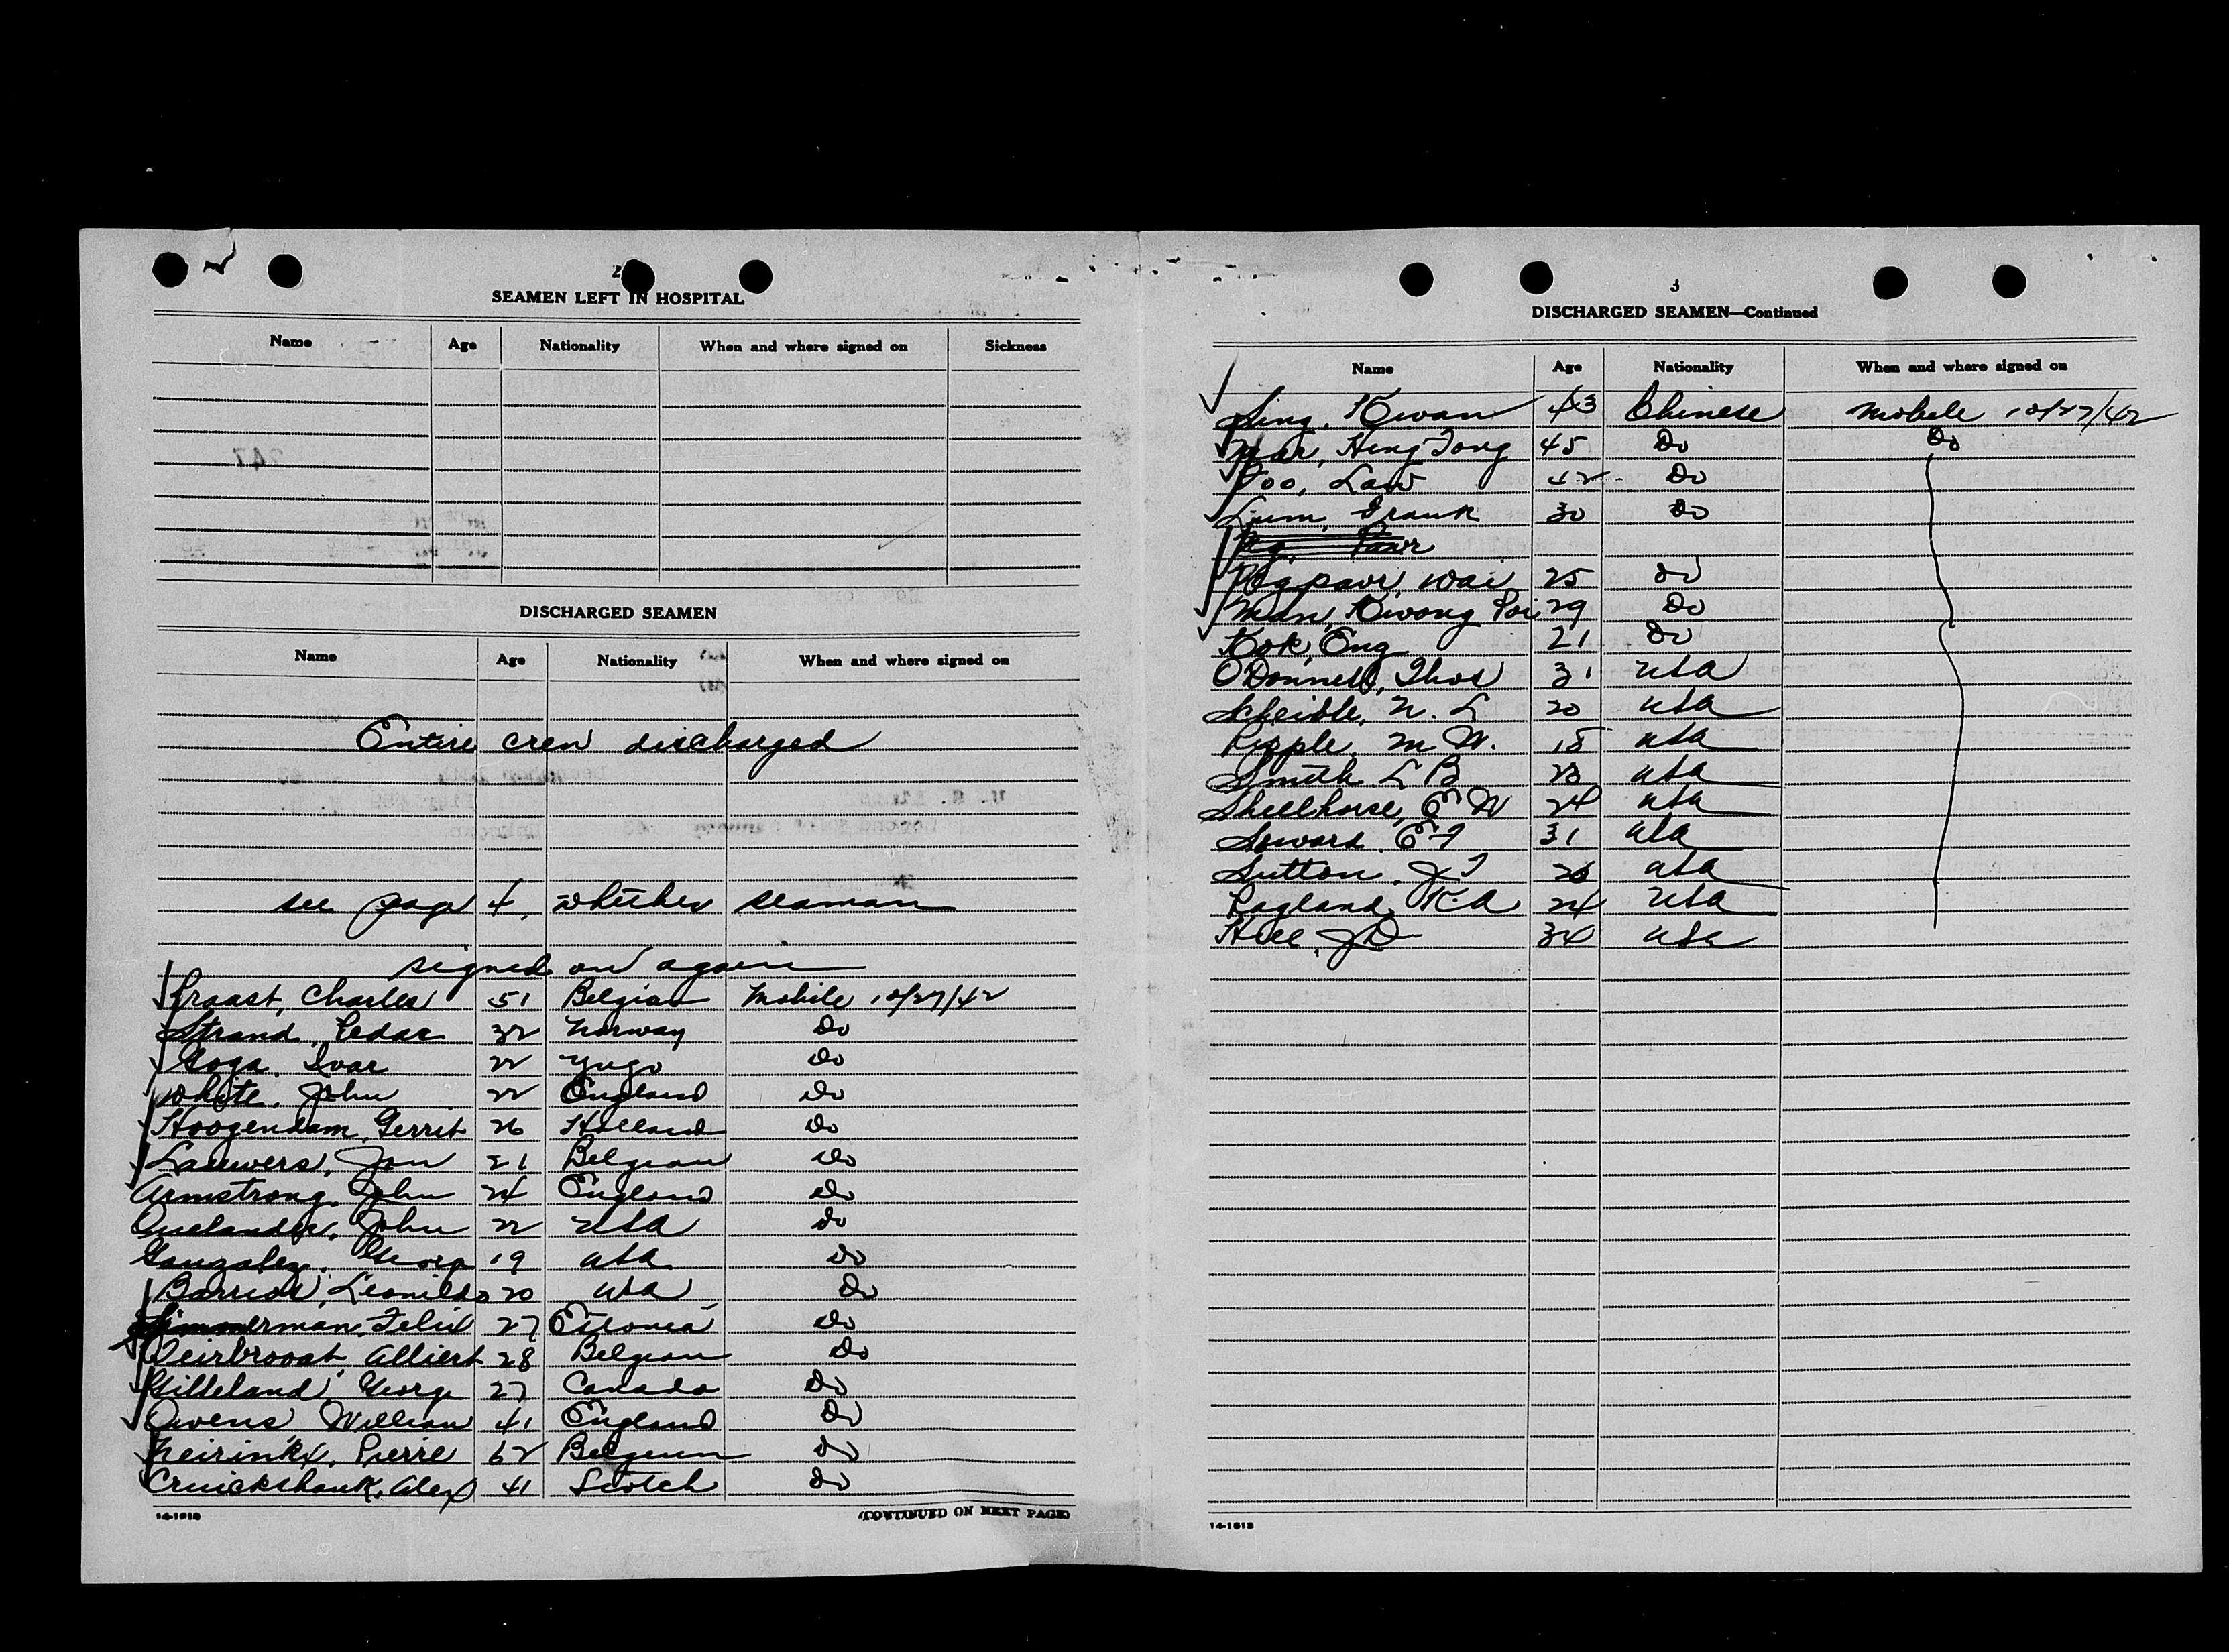 2
SEAMEN LEFT IN HOSPITAL
Name Age Nationality When and where signed on Sickness
DISCHARGED SEAMEN
Name Age Nationality When and where signed on
Entire crew discharged
see page 4, whether seaman
signed on again
Praast, Charles 51 Belgian Mobile 10/27/42
Strand, Pedar 32 Norway Do
Goga, Ivar 22 Yugo Do
White, John 22 England Do
Hoogendam, Gerrit 26 Holland Do
Lauwers, Jan 21 Belgian Do
Armstrong, John 24 England Do
John 22 USA Do
Gonzalez, 19 USA Do
Barrios, Leonildo 20 USA Do
Zimmerman, Felix 27 Do
Alliert 28 Belgian Do
Gilleland, George 27 Canada Do
Owens William 41 England Do
Neirinkx, Pierre 62 Belgium Do
Cruickshank, Alex 41 Scotch Do
14-1613
(CONTINUED ON NEXT PAGE)
3
DISCHARGED SEAMEN—Continued
Name Age Nationality When and where signed on
Sing, Kwan 43 Chinese Mobile 10/27/42
Mar, Hing Tong 45 Do Do
Foo, Law 42 Do
Lum, Frank 30 Do
Wai 25 Do
Man, Kwong Poi 29 Do
Kok, Eng 21 Do
O'Donnell, Thos 31 USA
Scheible, N. L 20 USA
Ripple, M W. 18 USA
Smith L B USA
Shellhorse, E W 24 USA
Soward, E F 31 USA
Sutton, J T USA
Ragland, K A 24 USA
Hill, J D 34 USA
14-1613